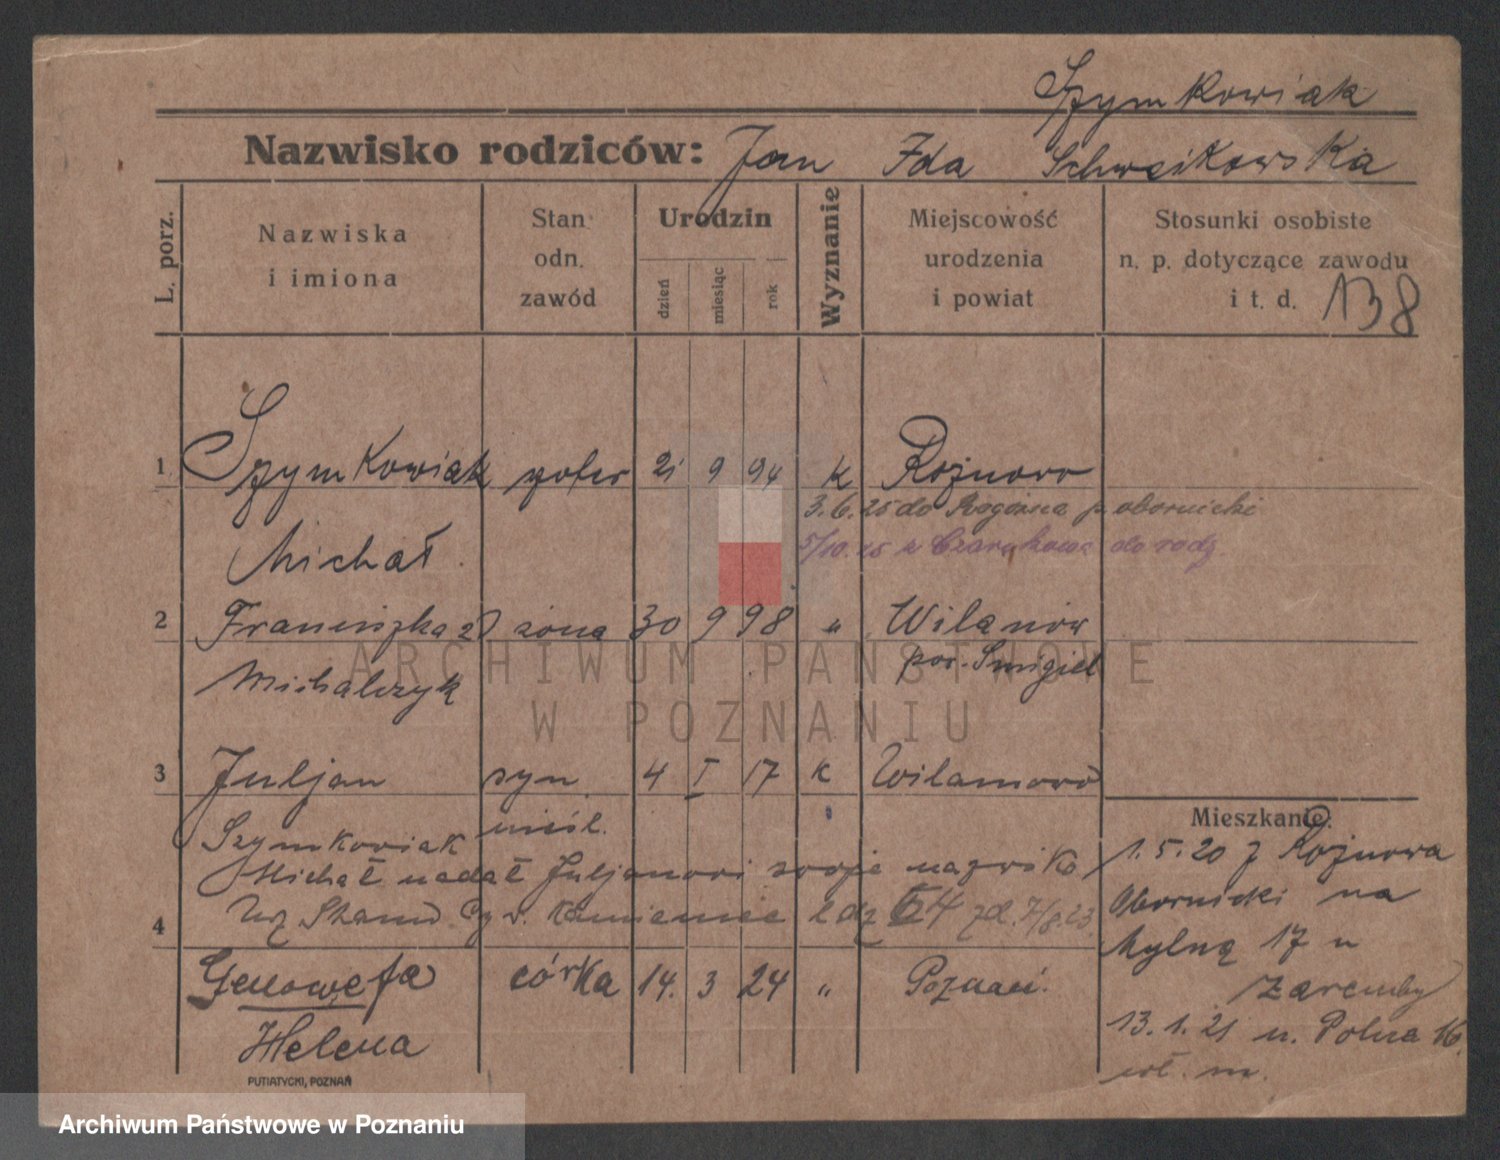 Szymkowiak
Nazwisko rodziców: Jan Ida Schweikowska
L. porz.
Nazwiska i imiona
Stan odn. zawód
Urodzin
dzień
miesiąc
rok
Wyznanie
Miejscowość urodzenia i powiat
Stosunki osobiste n. p. dotyczące zawodu i t. d. 138
1 Szymkowiak 21 9 94 k Rożnowo
3.6.25 do Rogoźna p. obornicki
Michał
5/10.25 z Czarnkowa do rodz.
2 Franciszka żona 30 9 98 " Wilanów
Michalczyk pow. Smigiel
3 Juljan syn 4 I 17 k Wilanowo
nieśl.
Szymkowiak
Michał nadał Juljanowi swoje nazwisko
Urz Stanu Cyw. Kamieniec 7/8.23
4
Genowefa córka 14. 3 24 " Poznań.
Helena
Mieszkanie:
1.5.20 z Rożnowa
Obornicki na
Mylną 17 u
Zaremby
13.1.21 u. Polna 16
wł. m.
PUTIATYCKI, POZNAŃ
ARCHIWUM PAŃSTWOWE
W POZNANIU
Archiwum Państwowe w Poznaniu